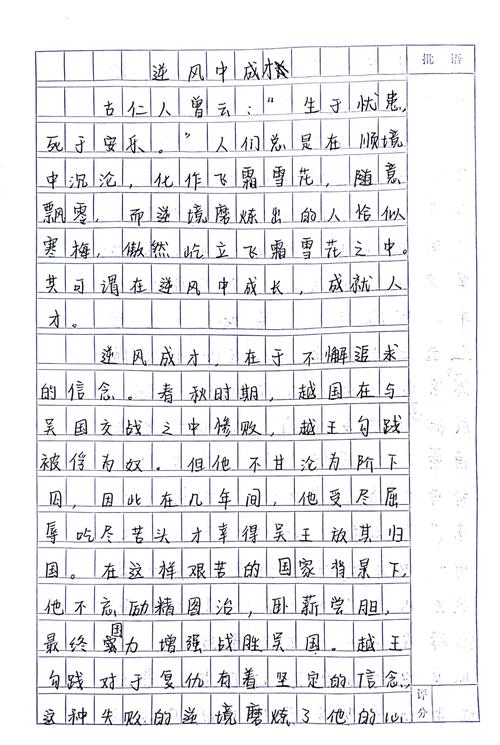 逆风中成才
批语
古仁人曾云：“生于忧患，
死于安乐。”人们总是在顺境
中沉沦，化作飞霜雪花，随意
飘零，而逆境磨炼出的人恰似
寒梅，傲然屹立飞霜雪花之中。
其可谓在逆风中成长，成就人
才。
逆风成才，在于不懈追求
的信念。春秋时期，越国在与
吴国交战之中惨败，越王勾践
被俘为奴。但他不甘沦为阶下
囚，因此在几年间，他受尽屈
辱吃尽苦头才幸得吴王放其归
国。在这样艰苦的国家背景下，
他不忘励精图治，卧薪尝胆，
最终国力增强战胜吴国。越王
勾践对于复仇有着坚定的信念，
这种失败的逆境磨炼了他的心
评分